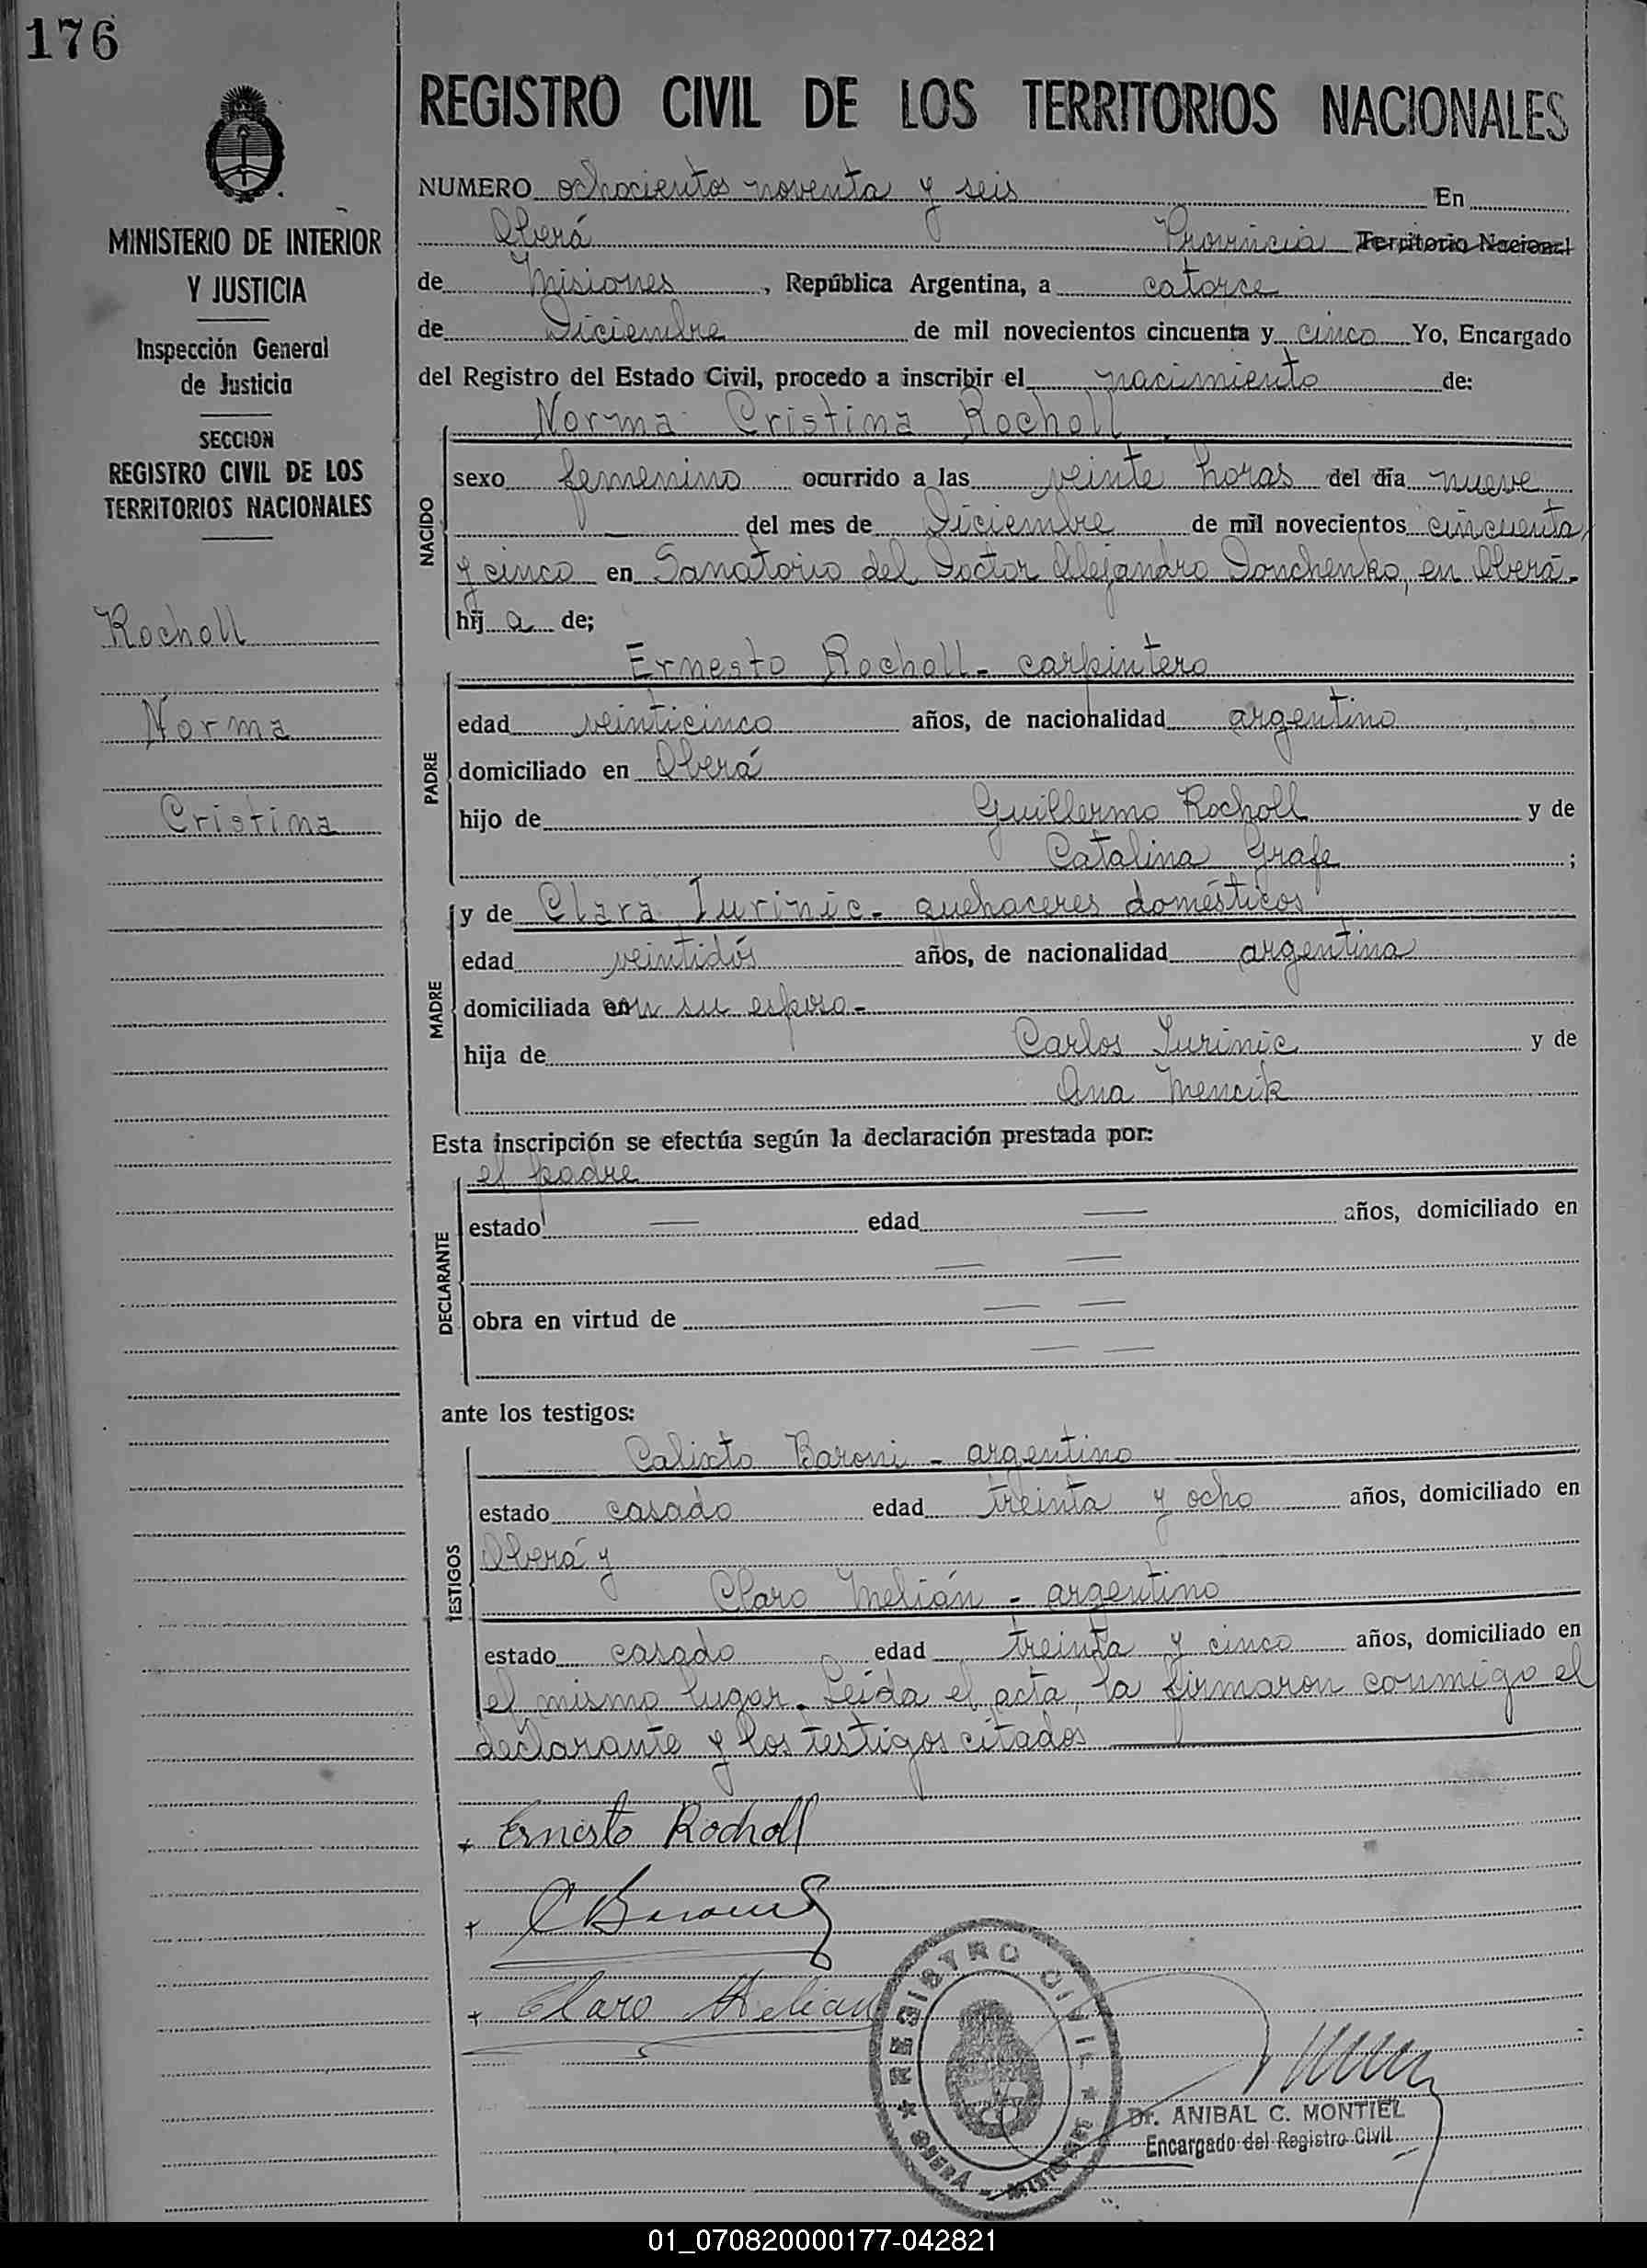 176
REGISTRO CIVIL DE LOS TERRITORIOS NACIONALES
MINISTERIO DE INTERIOR
Y JUSTICIA
Inspección General
de Justicia
SECCION
REGISTRO CIVIL DE LOS
TERRITORIOS NACIONALES
Rocholl
Norma
Cristina
NUMERO ochocientos noventa y seis En
Oberá Provincia Territorio Nacional
de Misiones, República Argentina, a catorce
de Diciembre de mil novecientos cincuenta y cinco Yo, Encargado
del Registro del Estado Civil, procedo a inscribir el nacimiento de:
NACIDO
Norma Cristina Rocholl
sexo femenino ocurrido a las veinte horas del día nueve
del mes de Diciembre de mil novecientos cincuenta
y cinco en Sanatorio del Doctor Alejandro Donchenko, en Oberá.
hij a de;
PADRE
Ernesto Rocholl - carpintero
edad veinticinco años, de nacionalidad argentino
domiciliado en Oberá
hijo de Guillermo Rocholl y de
Catalina Grafe ;
MADRE
y de Clara Iurinic - quehaceres domésticos
edad veintidós años, de nacionalidad argentina
domiciliada con su esposo -
hija de Carlos Iurinic y de
Ana Mencik
Esta inscripción se efectúa según la declaración prestada por:
DECLARANTE
el padre
estado — edad — años, domiciliado en
— —
obra en virtud de — —
— —
ante los testigos:
TESTIGOS
Calixto Baroni - argentino
estado casado edad treinta y ocho años, domiciliado en
Oberá y
Claro Melián - argentino
estado casado edad treinta y cinco años, domiciliado en
el mismo lugar. Leída el acta, la firmaron conmigo el
declarante y los testigos citados
+ Ernesto Rocholl
+ C Baroni
+ Claro Melian
REGISTRO CIVIL
OBERÁ - MISIONES
Dr. ANIBAL C. MONTIEL
Encargado del Registro Civil
01_070820000177-042821